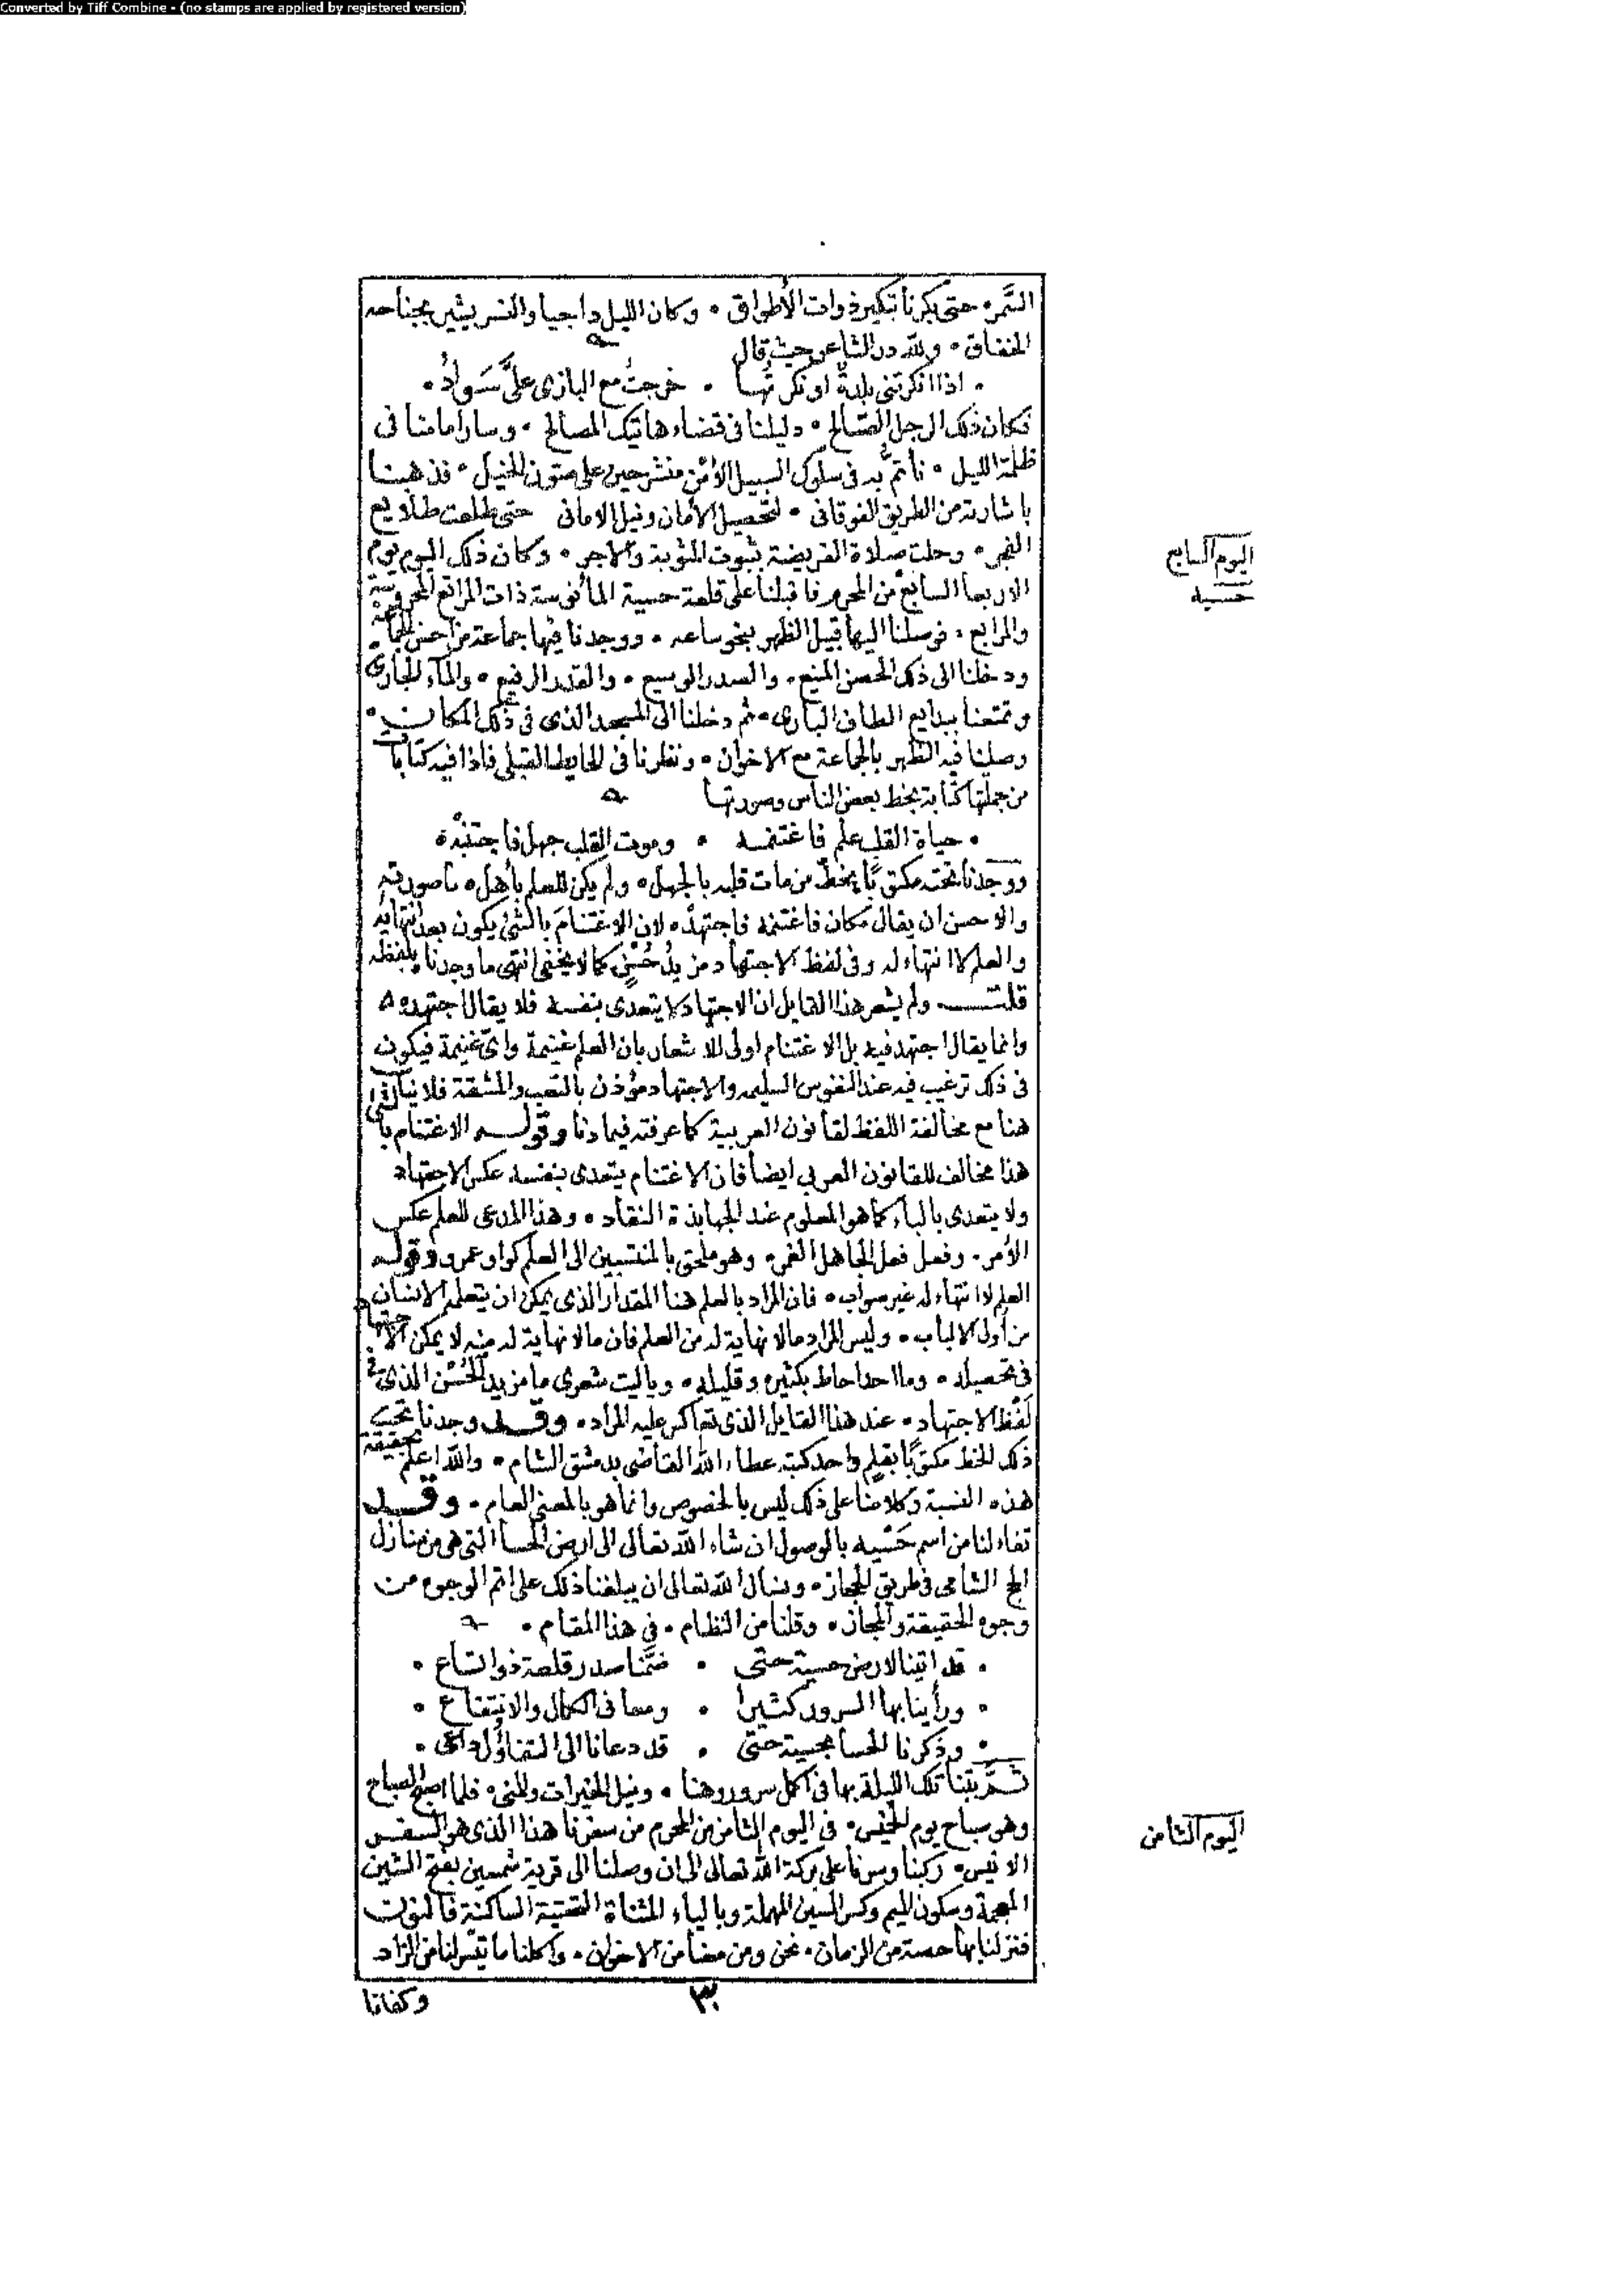 Converted by Tiff Combine - (no stamps are applied by registered version)
السَّمَر • حتى بكرنا تبكير ذوات الأطواق • وكان الليل داجيا والنسر يشير بجناحه
الخفاق • ولله در الشاعر حيث قال
• اذا انكرتني بلدةٌ او نكرتها • خرجتُ مع البازى علىَّ سَوادُ •
فكان ذلك الرجل الصّالح • دليلنا فى قضاء هاتيك المصالح • وسار امامنا فى
ظلمة الليل • نأتمّ به فى سلوك السبيل الأمن منشرحين على متون الخيل • فذهبنا
باشارته من الطريق الفوقانى • لتحصيل الأمان ونيل الامانى حتى طلعت طلايع
الفجر • وحلت صلاة الفريضة بثبوت المثوبة والاجر • وكان ذلك اليوم يوم
اليوم السابع
الاربعا السابع من المحرم فاقبلنا على قلعة حسية المأنوسة ذات المراتع المحروسة
حسيه
والمرابع • فوصلنا اليها قبيل الظهر بنحو ساعه • ووجدنا فيها جماعة من احسن الجماعة
ودخلنا الى ذلك الحصن المنيع • والصدر الوسيع • والقدر الرفيع • والمآء الجارى
وتمتعنا ببدايع الطاف البارى • ثم دخلنا الى المسجد الذى فى ذلك المكان •
وصلينا فيه الظهر بالجماعة مع الاخوان • ونظرنا فى الحايط القبلى فاذا فيه كتابات
من جملتها كتابة بخط بعض الناس وصورتها
• حياة القلب علم فاغتنمه • وموت القلب جهل فاجتنبْه
ووجدنا تحته مكتوبًا بخط من مات قلبه بالجهل • ولم يكن للعلم بأهل • ما صورته
والاحسن ان يقال مكان فاغتنمه فاجتهدْه لان الاغتنامَ بالشئ يكون بعد انتهايه
والعلم لا انتهاء له وفى لفظ الاجتهاد مزيدُ حُسْنٍ كما لا يخفى انتهى ما وجدناه بلفظه
قلت ولم يشعر هذا القايل ان الاجتهاد لا يتعدى بنفسه فلا يقال اجتهده
وانما يقال اجتهد فيه بل الاغتنام اولى للاشعار بان العلم غنيمة واىّ غنيمة فيكون
فى ذلك ترغيب فيه عند النفوس السليمه والاجتهاد مؤذن بالتعب والمشقة فلا يناسب
هنا مع مخالفة اللفظ لقانون العربية كما عرفته فيما دنا وقوله الاغتنام بالشئ
هذا مخالف للقانون العربى ايضا فان الاغتنام يتعدى بنفسه عكس الاجتهاد
ولا يتعدى بالباء كما هو المعلوم عند الجهابذة النقاد • وهذا المدعى للعلم عكس
الأمر • وفعل فعل الجاهل الغمر • وهو ملحق بالمنتسبين الى العلم كواو عمرو وقوله
العلم لا انتهاء له غير صواب • فان المراد بالعلم هنا المقدار الذى يمكن ان يتعلمه الانسان
من أولى الالباب • وليس المراد ما لا نهاية له من العلم فان ما لا نهاية له منه لا يمكن الاجتهاد
فى تحصيله • وما احد احاط بكثيره وقليله • وياليت شعرى ما مزيد الحُسْن الذى فى
لَفْظ الاجتهاد • عند هذا القايل الذى تعاكس عليه المراد • وقد وجدنا تحت
ذلك الخط مكتوبًا بقلم واحد كتبه عطاء الله القاضى بدمشق الشام • والله اعلم بحقيقة
هذه النسبة وكلامنا على ذلك ليس بالخصوص وانما هو بالمعنى العام • وقد
تفاءلنا من اسم حَسْيه بالوصول ان شاء الله تعالى الى ارض الحسا التى هى من منازل
الحج الشامى فى طريق الحجاز • ونسأل الله تعالى ان يبلغنا ذلك على اتم الوجوه من
وجوه الحقيقة والمجاز • وقلنا من النظام • فى هذا المقام •
• قد اتينا لارض حسية حتى • ضمّنا صدر قلعة ذو اتساع •
• ورأينا بها السرور كثيرا • ومعانى الكمال والانتفاع •
• وذكرنا الحسا بحسية حتى • قد دعانا الى التفاؤُل داعى •
ثمَّ بتنا تلك الليلة بها فى اكمل سرور وهنا • ونيل الخيرات والمنى • فلما اصبح الصباح
وهو صباح يوم الخميس • فى اليوم الثامن من المحرم من سفرنا هذا الذى هو السفر
اليوم الثامن
الانيس • ركبنا وسرنا على بركة الله تعالى الى ان وصلنا الى قرية شمسين بفتح الشين
المعجمة وسكون الميم وكسر السين المهملة وبالياء المثناة التحتية الساكنة فالنون
فنزلنا بها حصة من الزمان • نحن ومن معنا من الاخوان • واكلنا ما تيسّر لنا من الزاد
٣٠
وكفانا